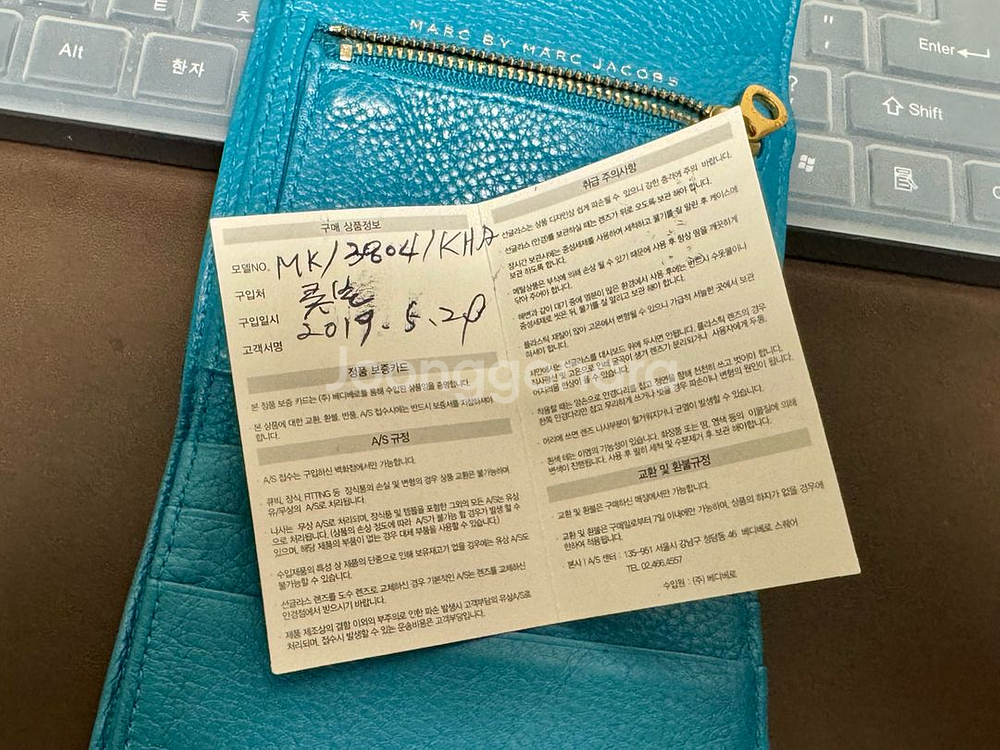 Alt
한자
ㅊ
Enter
Shift
MARC BY MARC JACOBS
구매 상품정보
모델NO. MK/3804/KHA
구입처
구입일시 2019. 5. 28
고객서명
정품 보증카드
본 정품 보증 카드는 (주) 베디베로를 통해 수입된 상품임을 증명합니다.
본 상품에 대한 교환, 환불, 반품, A/S 접수시에는 반드시 보증서를 지참하셔야
합니다.
A/S 규정
A/S 접수는 구입하신 백화점에서만 가능합니다.
큐빅, 장식, FITTING 등 장식품의 손실 및 변형의 경우 상품 교환은 불가능하며
유/무상의 A/S로 처리됩니다.
나사는 무상 A/S로 처리되며, 장식품 및 템플을 포함한 그외의 모든 A/S는 유상
으로 처리됩니다. (상품의 손상 정도에 따라 A/S가 불가능 할 경우가 발생 할 수
있으며, 해당 제품의 부품이 없는 경우 대체 부품을 사용할 수 있습니다.)
수입제품의 특성 상 제품의 단종으로 인해 보유재고가 없을 경우에는 유상 A/S도
불가능할 수 있습니다.
선글라스 렌즈를 도수 렌즈로 교체하신 경우 기본적인 A/S는 렌즈를 교체하신
안경점에서 받으시기 바랍니다.
제품 제조상의 결함 이외의 부주의로 인한 파손 발생시 고객부담의 유상A/S로
처리되며, 접수시 발생할 수 있는 운송비용은 고객부담입니다.
취급 주의사항
선글라스는 상품 디자인상 쉽게 파손될 수 있으니 강한 충격에 주의 바랍니다.
선글라스 (안경)를 보관하실 때는 렌즈가 위로 오도록 보관 해야 합니다.
장시간 보관시에는 중성세제를 사용하여 세척하고 물기를 잘 말린 후 케이스에
보관 하도록 합니다.
메탈상품은 부식에 의해 손상 될 수 있기 때문에 사용 후 항상 땀을 깨끗하게
닦아 주어야 합니다.
해변과 같이 대기 중에 염분이 많은 환경에서 사용 후에는 반드시 수돗물이나
중성세제로 씻은 뒤, 물기를 잘 말리고 보관 해야 합니다.
플라스틱 재질이 많아 고온에서 변형될 수 있으니 가급적 서늘한 곳에서 보관
하셔야 합니다.
차안에서는 선글라스를 대시보드 위에 두시면 안됩니다. 플라스틱 렌즈의 경우
직사광선 및 고온으로 인해 굴곡이 생겨 렌즈가 분리되거나 사용자에게 두통,
어지러움을 한상이 올 수 있습니다.
착용할 때는 양손으로 안경다리를 잡고 정면을 향해 천천히 쓰고 벗어야 합니다.
한쪽 안경다리만 잡고 무리하게 쓰거나 벗을 경우 파손이나 변형의 원인이 됩니다.
머리에 쓰면 렌즈 나사부분이 헐거워지거나 균열이 발생할 수 있습니다.
흰색 테는 이염의 가능성이 있습니다. 화장품 또는 땀, 염색 등의 이물질에 의해
변색이 진행됩니다. 사용 후 필히 세척 및 수분제거 후 보관 해야합니다.
교환 및 환불규정
교환 및 환불은 구매하신 매장에서만 가능합니다.
교환 및 환불은 구매일로부터 7일 이내에만 가능하며, 상품의 하자가 없을 경우에
한하여 적용됩니다.
본사 / A/S 센터 : 135-961 서울시 강남구 청담동 46 베디베로 스퀘어
TEL 02.466.4557
수입원 : (주) 베디베로
Joonggonara